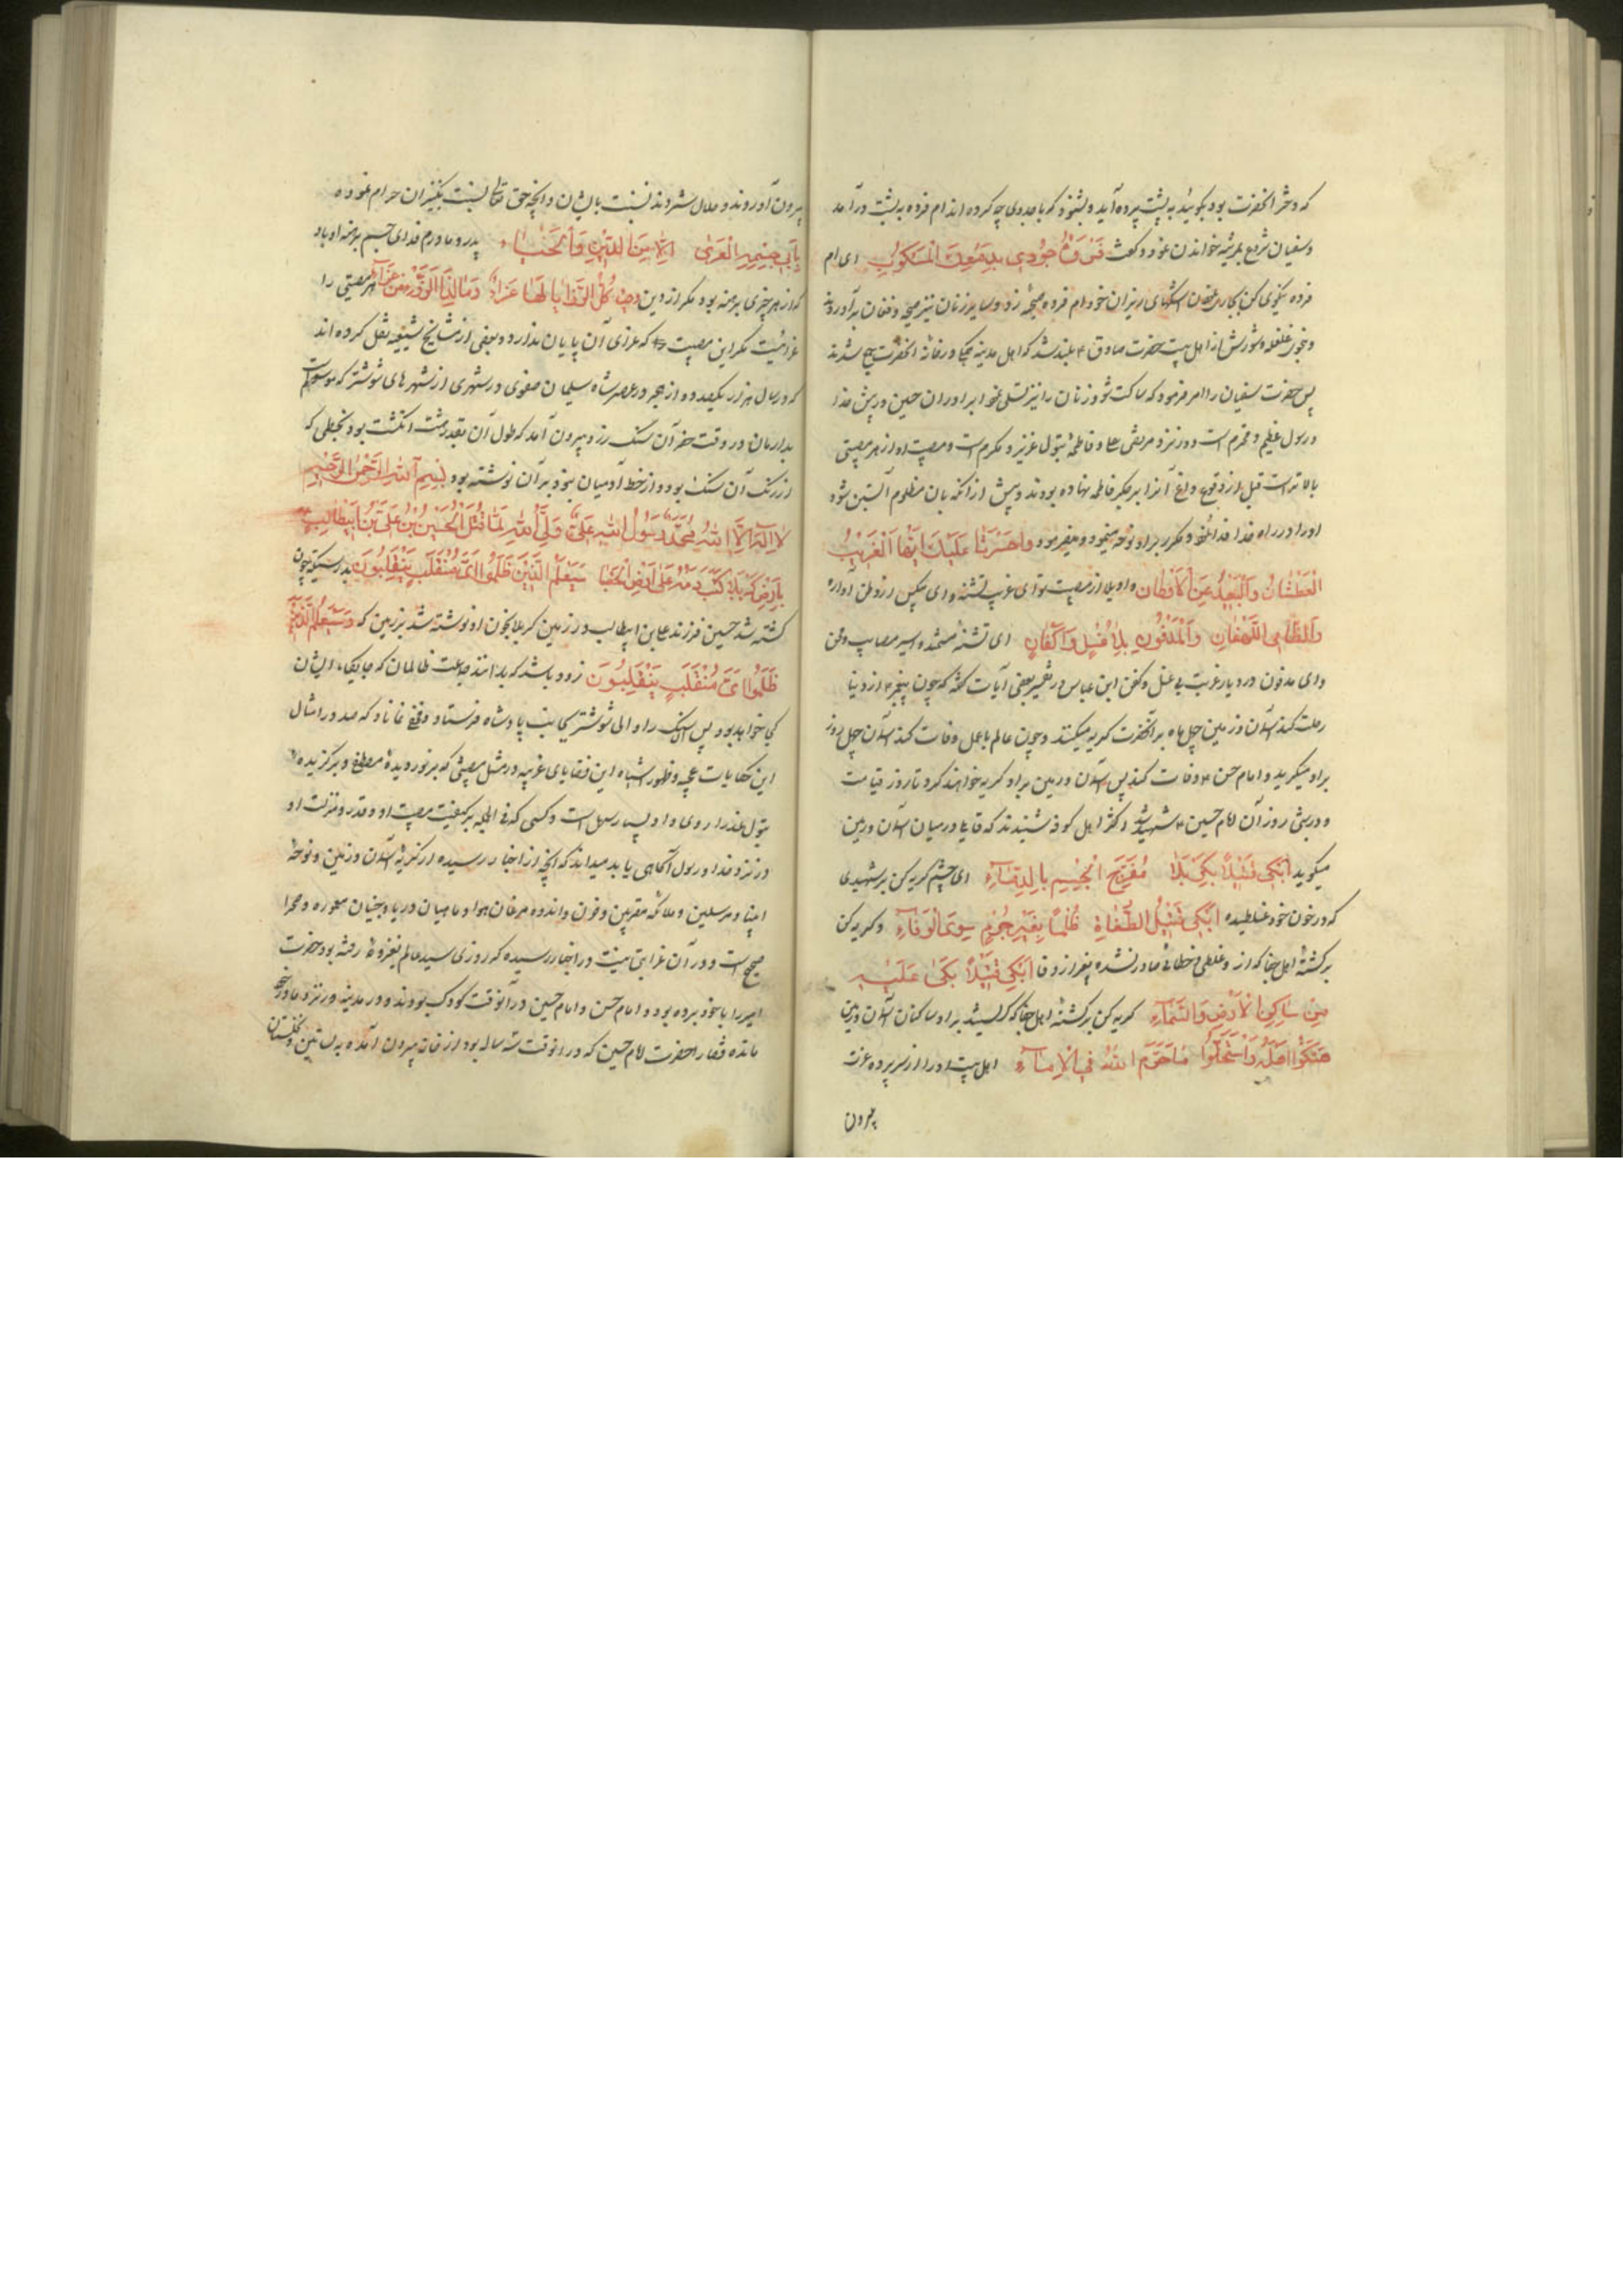 که دختر آنحضرت بود بگوئید به پشت پرده آید و بشنود که با جد وی چه کرده اند ام فروه به پشت در آمد
و سفیان شروع بمرثیه خواندن نمود و گفت فَرْوُ جُودِی بِدَمْعِكَ الْمَسْکُوبِ ای ام
فروه نیکوئی کن بجاری ساختن اشکهای ریزان خود ام فروه صیحه زد و سایر زنان نیز صیحه و فغان برآوردند
و نحوی غلغله و شورش از اهل بیت حضرت صادق ع بلند شد که اهل مدینه یکجا در خانه آنحضرت جمع شدند
پس حضرت سفیان را امر فرمود که ساکت شو و زنان را نیز تسلی نمود ای برادران حسین در پیش خدا
و رسول عظیم و محترم است و در نزد مرتضی علی و فاطمه بتول عزیز و مکرم است و مصیبت او از هر مصیبتی
بالاتر است قبل از وقوع داغ آنرا بر جگر فاطمه نهاده بودند و پیش از آنکه بان مظلوم آبستن شود
او را در راه خدا فدا نمود و مکرر بر او نوحه مینمود و میفرمود وا حَسْرَتا عَلَیْكَ اَیُّهَا الْغَرِیْبُ
الْعَطْشَانُ وَالْبَعِیْدُ عَنِ الْاَوْطَانِ واویلا از مصیبت تو ای غریب تشنه و ای بیکس از وطن آواره
وَالظَّامِی اللَّهْفَانِ وَالْمَدْفُونِ بِلَا غُسْلٍ وَاَکْفَانٍ ای تشنه ستمدیده اسیر مصایب و محن
و ای مدفون در دیار غربت بی غسل و کفن ابن عباس در تفسیر بعضی آیات گفته که چون پیغمبر از دنیا
رحلت کند آسمان و زمین چهل ماه بر آنحضرت گریه میکنند و چون عالم با عمل وفات کند آسمان چهل روز
بر او میگرید و امام حسن ع وفات کند پس آسمان و زمین بر او گریه خواهند کرد تا روز قیامت
و در شبی روز آن امام حسین ع شهید شد و اکثر اهل کوفه شنیدند که قایلی در میان آسمان و زمین
میگوید اَبْکِی قَتِیْلًا بِکَرْبَلَا مُضَرَّجَ الْجِسْمِ بِالدِّمَاءِ ای چشم گریه کن بر شهیدی
که در خون خود غلطیده اَبْکِی قَتِیْلَ الطُّغَاةِ ظُلْمًا بِغَیْرِ جُرْمٍ سِوَی الْوَفَاءِ و گریه کن
بر کشته اهل جفا که از و غلطی و خطائی صادر نشده بغیر از وفا اَبْکِی قَتِیْلًا بَکَی عَلَیْهِ
مِنْ سَاکِنِ الْاَرْضِ وَالسَّمَاءِ گریه کن بر کشته اهل جفا که گریستند بر او ساکنان آسمان و زمین
هَتَکُوا اَهْلَهُ وَاسْتَحَلُّوا مَا حَرَّمَ اللهُ فِی الْاِمَاءِ اهل بیت او را از سر پرده عزت
بیرون
بیرون آوردند و حلال شمردند نسبت بایشان و آنچه حق تعالی نسبت بکنیزان حرام نموده
بِاَبِی جِسْمِهِ الْمُعَرَّی اِلَّا مِنَ الدِّیْنِ وَالْحَیَاءِ پدر و مادرم فدای جسم برهنه او باد
که از هر چیزی برهنه بود مگر از دین و حیا کُلُّ الرَّزَایَا لَهَا عَزَاءٌ وَمَا لِذَا الرُّزْءِ مِنْ عَزَاءٍ هر مصیبتی را
عزائیست مگر این مصیبت را که عزای آن پایان ندارد و بعضی از مشایخ شیعه نقل کرده اند
که در سال هزار و یکصد و ده از هجر در عصر شاه سلیمان صفوی در شهری از شهرهای شوشتر که موسوم است
بدارمان در وقت حفر آن سنگ زرد بیرون آمد که طول آن بقدر هشت انگشت بود و بخطی که
از رنگ آن سنگ بود و از خط آدمیان نبود بر آن نوشته بود بِسْمِ اللهِ الرَّحْمٰنِ الرَّحِیْمِ
لَا اِلٰهَ اِلَّا اللهُ مُحَمَّدٌ رَسُوْلُ اللهِ عَلِیٌّ وَلِیُّ اللهِ لَمَّا قُتِلَ الْحُسَیْنُ بْنُ عَلِیِّ بْنِ اَبِیطَالِبٍ
بِاَرْضِ کَرْبَلَا کُتِبَ دَمُهُ عَلَی اَرْضِ الْحَصَا سَیَعْلَمُ الَّذِیْنَ ظَلَمُوا اَیَّ مُنْقَلَبٍ یَنْقَلِبُوْنَ بدرستیکه چون
کشته شد حسین فرزند علی بن ابیطالب در زمین کربلا بخون او نوشته شد بر زمین که وَسَیَعْلَمُ الَّذِیْنَ
ظَلَمُوا اَیَّ مُنْقَلَبٍ یَنْقَلِبُوْنَ زود باشد که بدانند جماعت ظالمان که جایگاه ایشان
کجا خواهد بود پس آن سنگ را والی شوشتر بجانب پادشاه فرستاد و مخفی نماناد که صدور امثال
این حکایات عجیبه و ظهور اشباه این قضایای غریبه در مثل مصیبتی که بر نور دیده مصطفی و برگزیده
بتول عذرا روی داد بسیار سهل است و کسی که فی الجمله بر کیفیت مصیبت او و قدر و منزلت او
در نزد خدا و رسول آگاهی یابد میداند که آنچه از اخبار رسیده از گریه آسمان و زمین و نوحه
انبیا و مرسلین و ملائکه مقربین و حزن و اندوه مرغان هوا و ماهیان دریا و جنیان معموره و صحرا
صحیح است و در آن غرابتی نیست در اخبار رسیده که روزی سید عالم بغزوه رفته بود حضرت
امیر را با خود برده بود و امام حسن و امام حسین در آنوقت کودک بودند و در مدینه در نزد مادر خود
مانده قضا را حضرت امام حسین که در آنوقت سه ساله بود از خانه بیرون آمده به بساتین و نخلستان